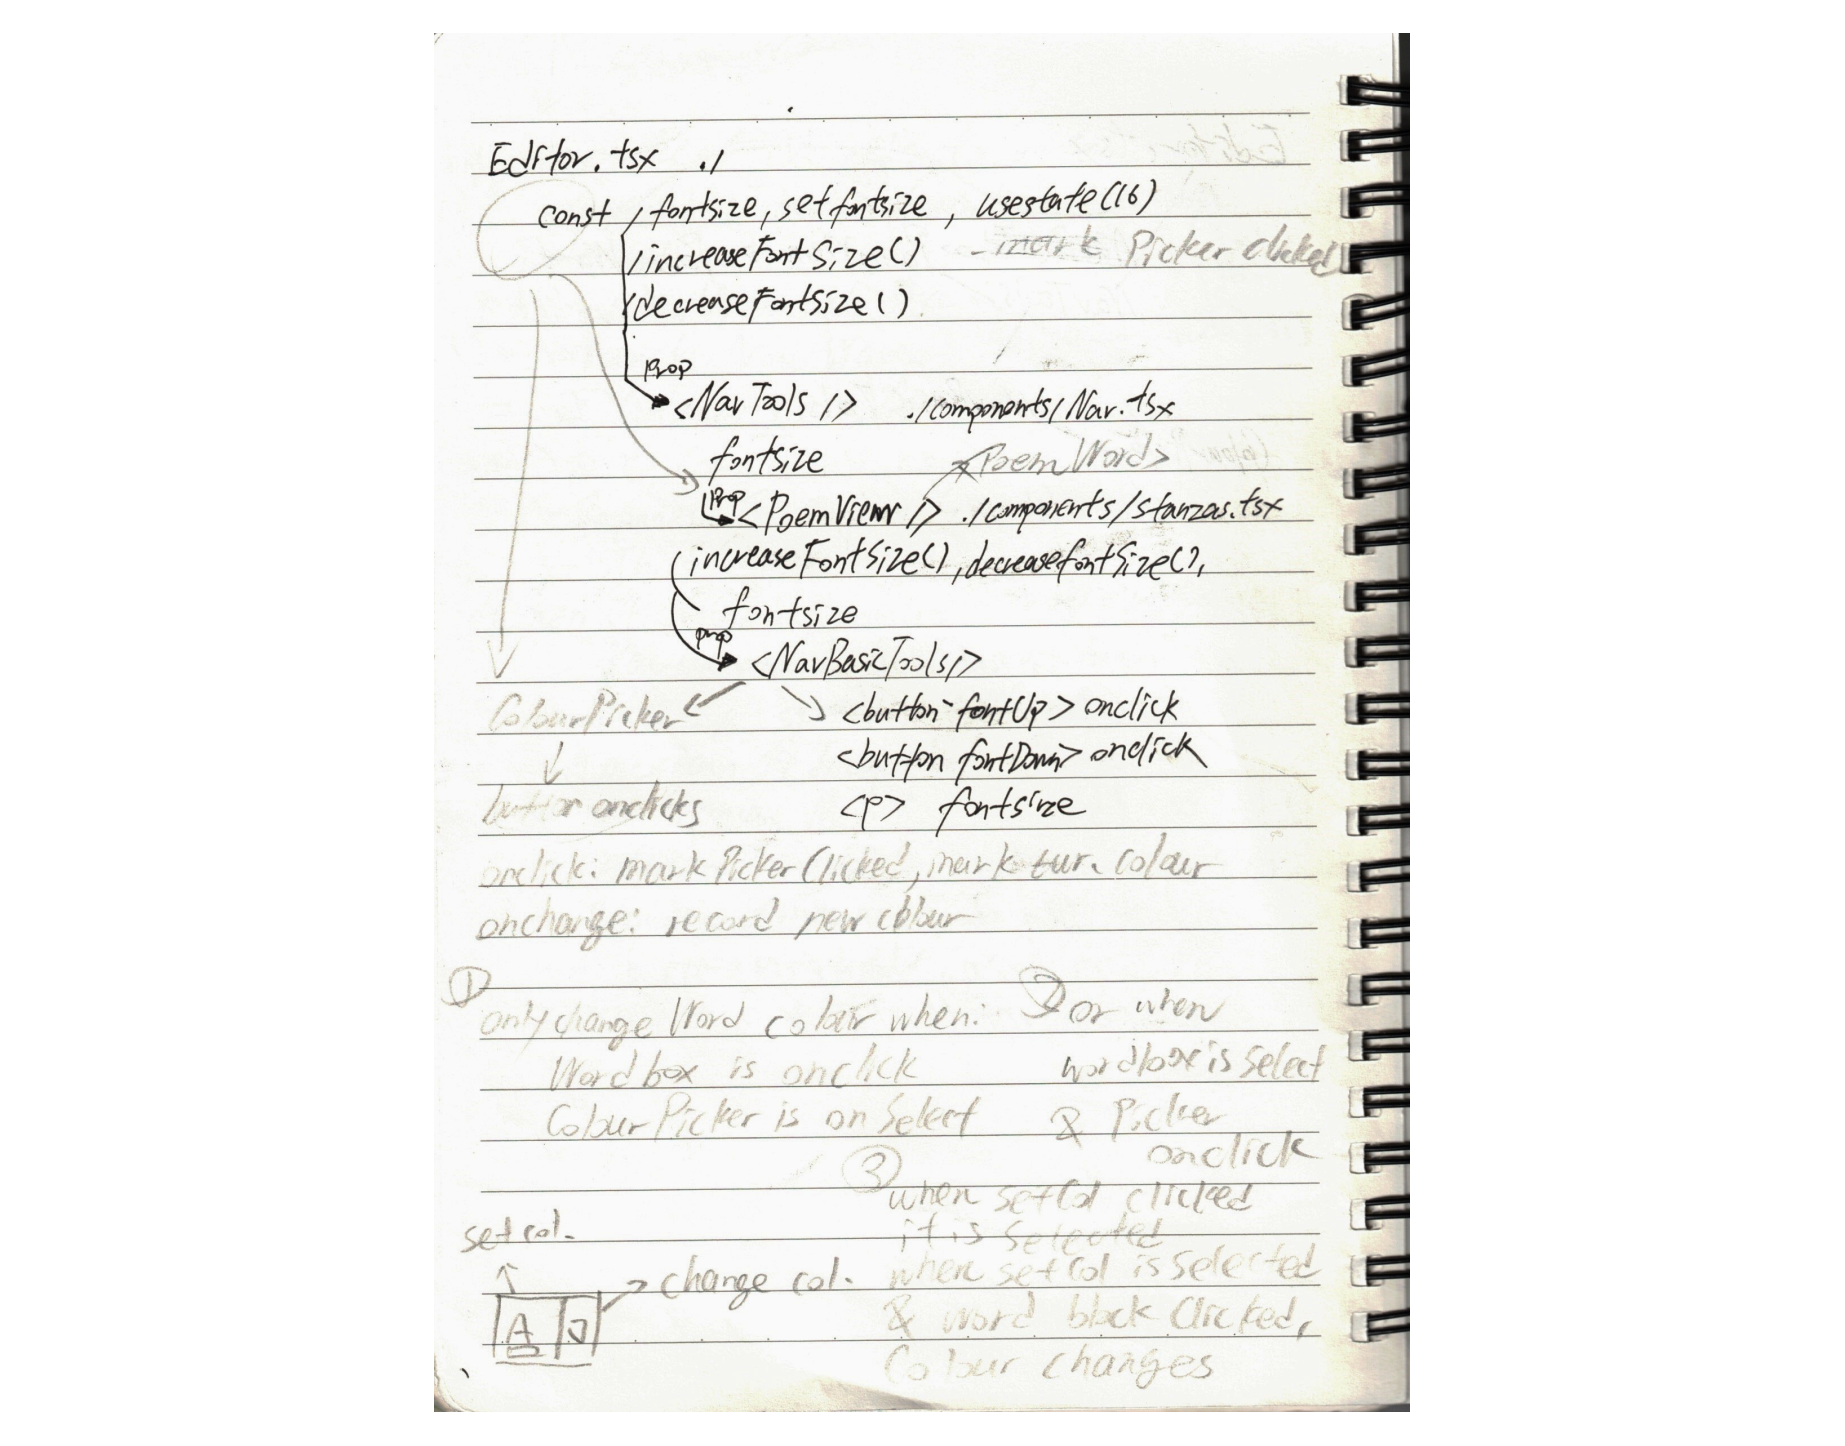 Editor.tsx ./
const / fontsize, setfontsize, usestate(16)
/ increaseFontSize() - mark Picker clicked
/ decreaseFontSize()
Prop
<NavTools /> ./components/Nav.tsx
fontsize <PoemWord>
Prop <PoemView /> ./components/stanzas.tsx
increaseFontSize(), decreasefontSize(),
fontsize
prop
<NavBasicTools/>
ColourPicker <button fontUp> onclick
<button fontDown> onclick
button onclicks <p> fontsize
onclick: mark Picker Clicked, mark cur. colour
onchange: record new colour
① ②
only change Word colour when: or when
Word box is onclick wordbox is select
Colour Picker is on Select & Picker
onclick
③
when setCol clicked
set col. it is selected
change col. when setCol is selected
A & word block Clicked,
Colour changes